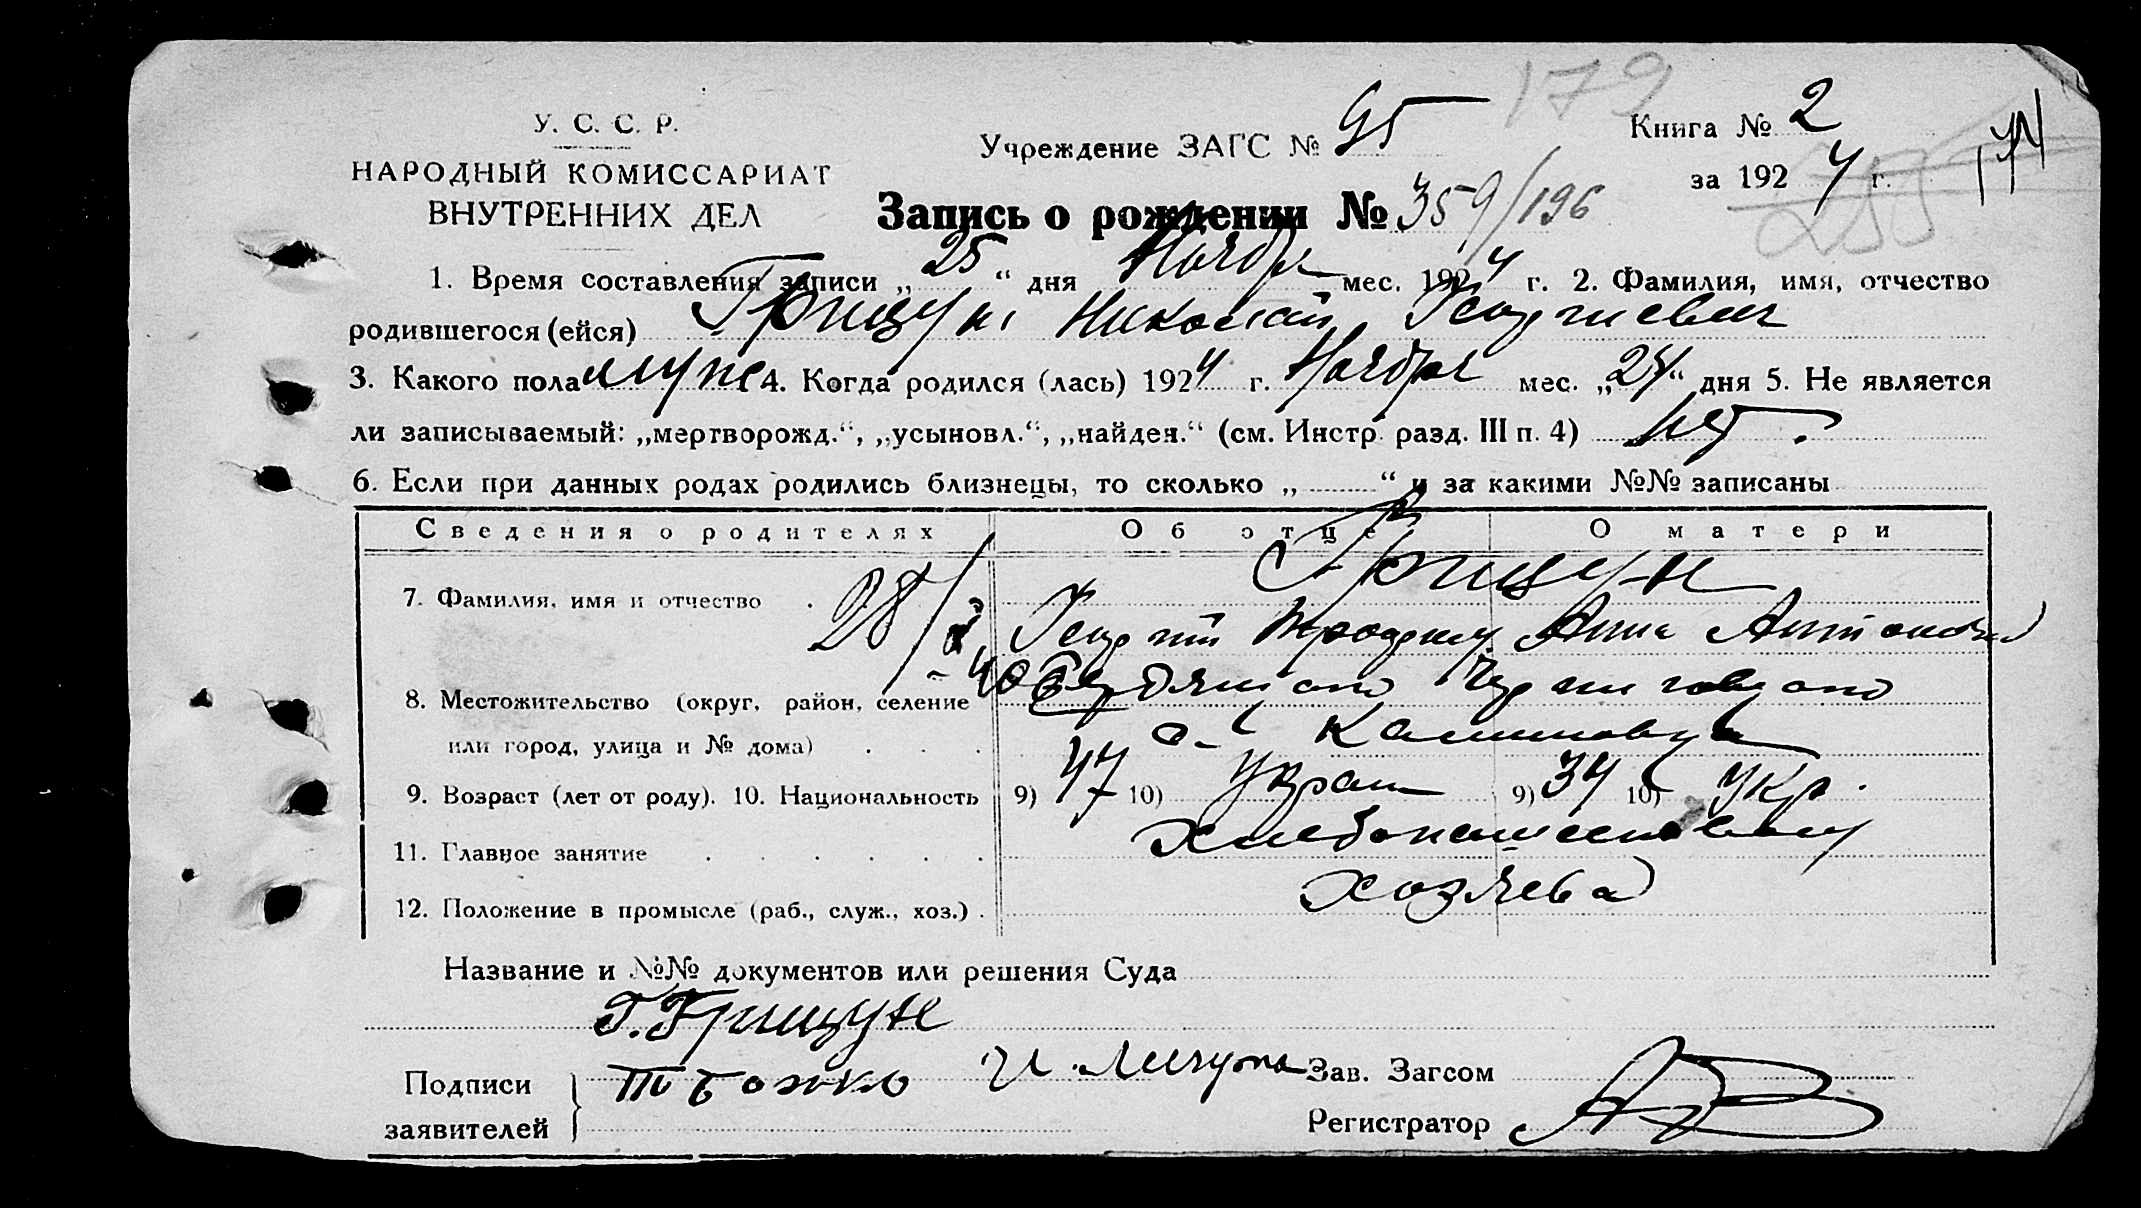 179
У. С. С. Р.
НАРОДНЫЙ КОМИССАРИАТ
ВНУТРЕННИХ ДЕЛ
Учреждение ЗАГС № 95
Книга № 2
за 1924 г.
174
255
Запись о рождении № 359/196
1. Время составления записи „25“ дня Ноября мес. 1924 г. 2. Фамилия, имя, отчество
родившегося (ейся) Грицун Николай Георгиевич
3. Какого пола муж 4. Когда родился (лась) 1924 г. Ноября мес. „24“ дня 5. Не является
ли записываемый: „мертворожд.“, „усыновл.“, „найден.“ (см. Инстр. разд. III п. 4) нет.
6. Если при данных родах родились близнецы, то сколько „ “ и за какими №№ записаны
Сведения о родителях Об отце О матери
Грицун
7. Фамилия, имя и отчество 28/ Георгий Анна Антоновна
8. Местожительство (округ, район, селение
или город, улица и № дома) с.
9. Возраст (лет от роду). 10. Национальность 9) 47 10) Украин 9) 34 10) Укр.
11. Главное занятие
12. Положение в промысле (раб., служ., хоз.) Хозяева
Название и №№ документов или решения Суда
Г. Грицун
Подписи
заявителей
Божко
Зав. Загсом
Регистратор